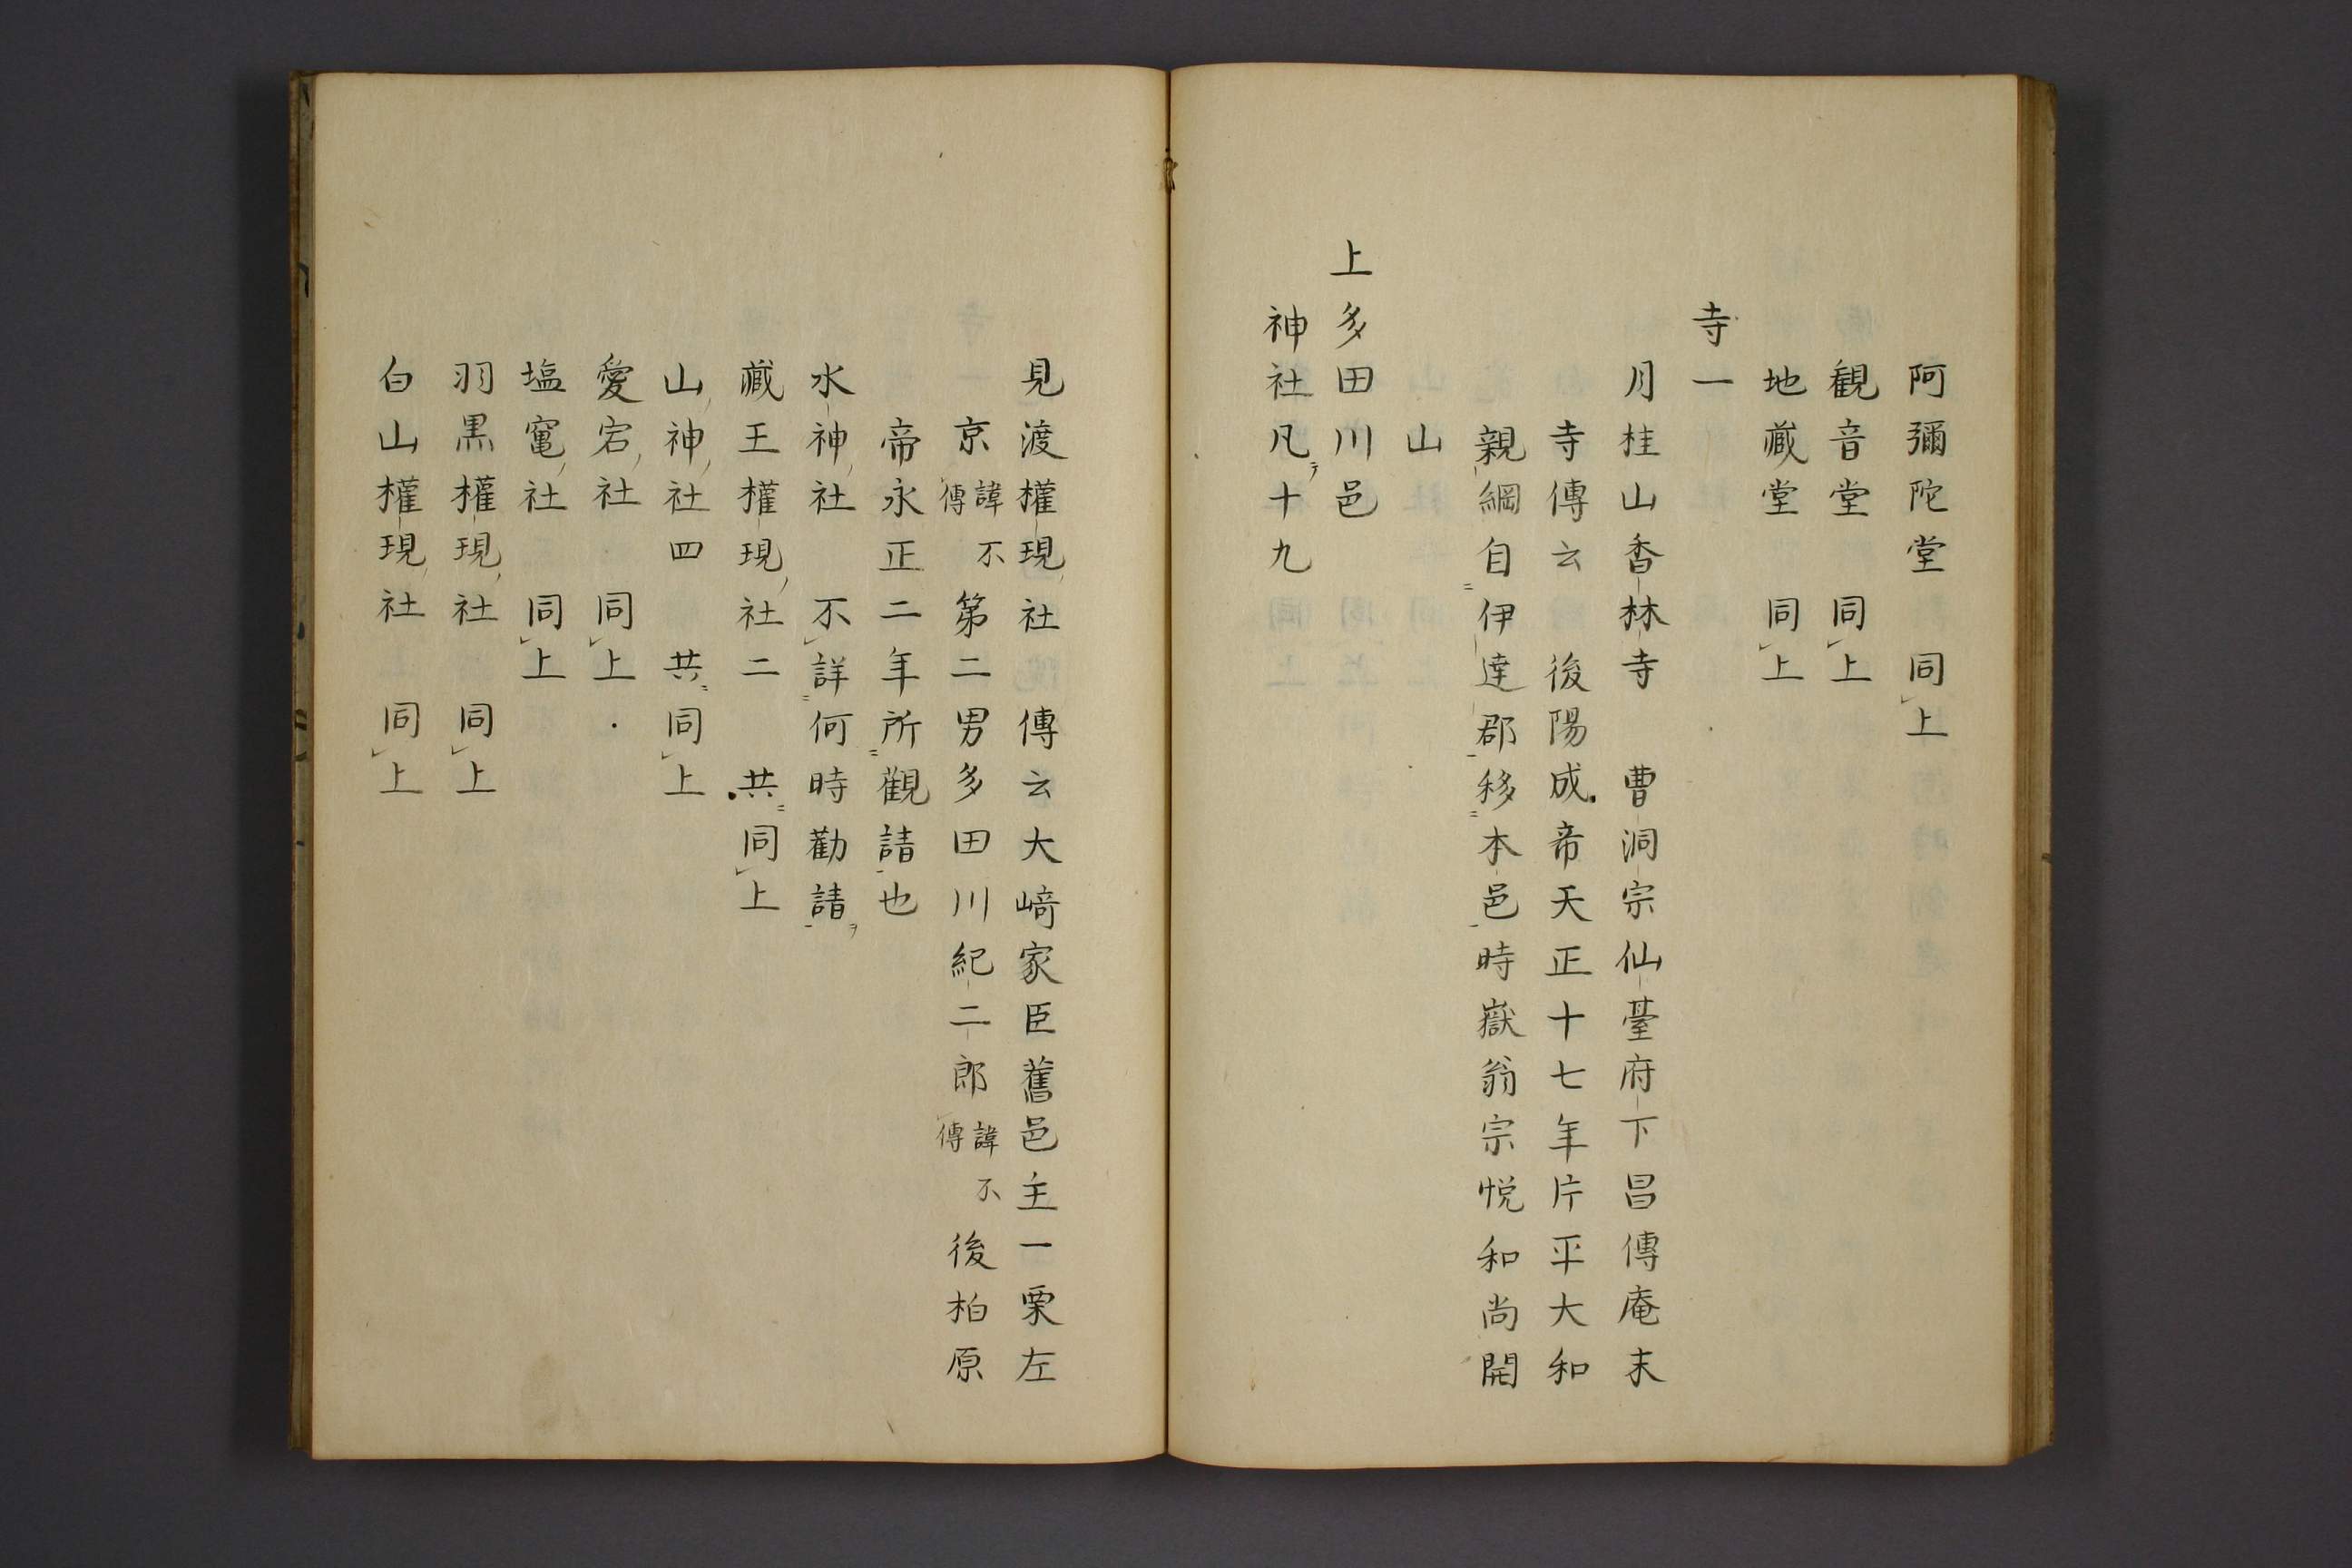 阿彌陀堂　同上
観音堂　同上
地藏堂　同上
寺一
月桂山香林寺　曹洞宗仙臺府下昌傳庵末
寺傳云　後陽成帝天正十七年片平大和
親綱自伊達郡移本邑時嶽翁宗悦和尚開
山
上多田川邑
神社凡十九
見渡權現社　傳云大﨑家臣舊邑主一栗左
京諱不傳第二男多田川紀二郎諱不傳後柏原
帝永正二年所觀請也
水神社　不詳何時勸請
藏王權現社二　共同上
山神社四　共同上
愛宕社　同上
塩竈社　同上
羽黒權現社　同上
白山權現社　同上